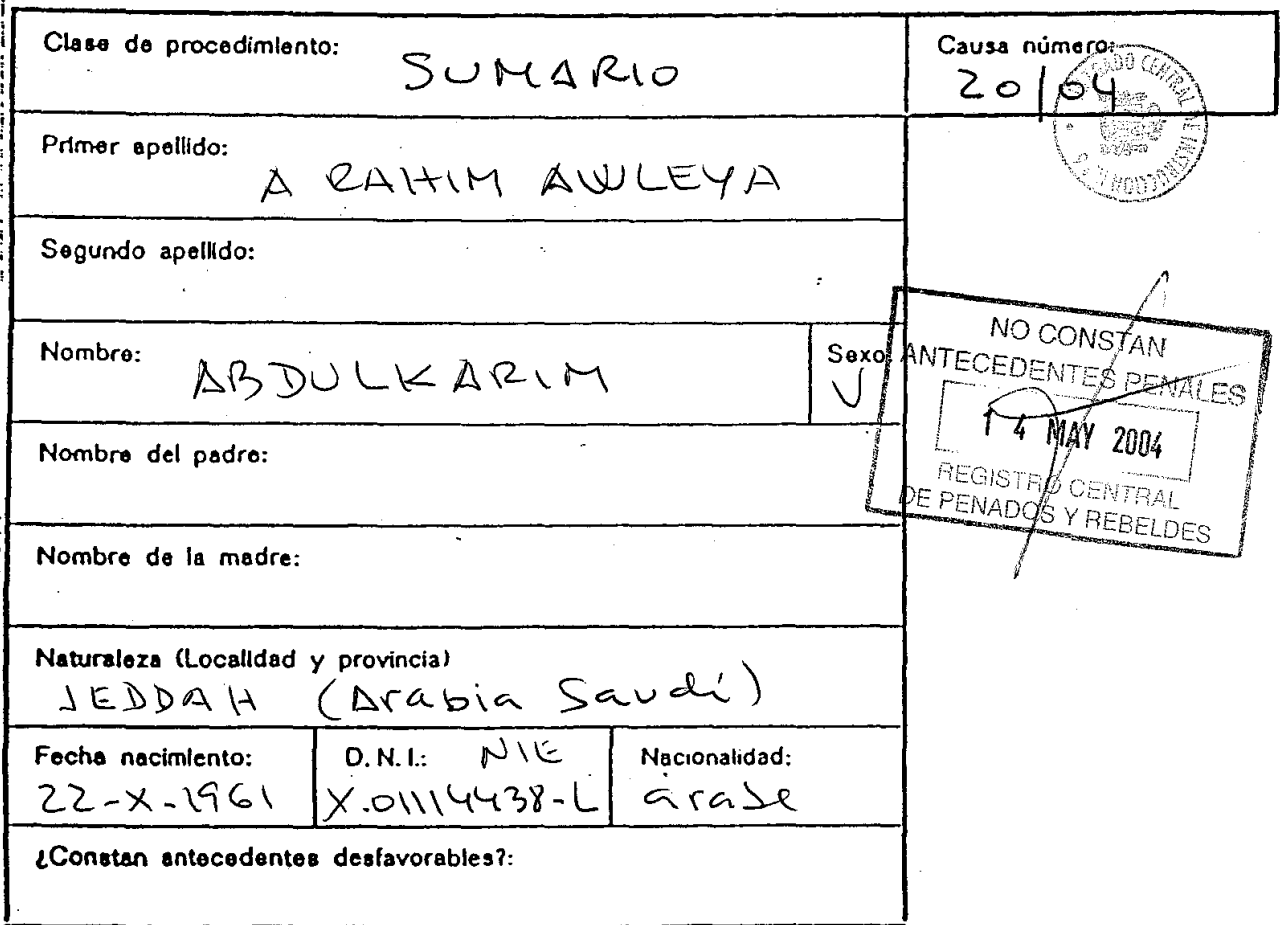 Clase de procedimiento:
SUMARIO
Causa número:
20/04
Primer apellido:
A RAHIM AWLEYA
Segundo apellido:
Nombre:
ABDULKARIM
Sexo
V
NO CONSTAN
ANTECEDENTES PENALES
14 MAY 2004
REGISTRO CENTRAL
DE PENADOS Y REBELDES
Nombre del padre:
Nombre de la madre:
Naturaleza (Localidad y provincia)
JEDDAH (Arabia Saudí)
Fecha nacimiento:
22-X-1961
D.N.I.: NIE
X.01114438-L
Nacionalidad:
árabe
¿Constan antecedentes desfavorables?: